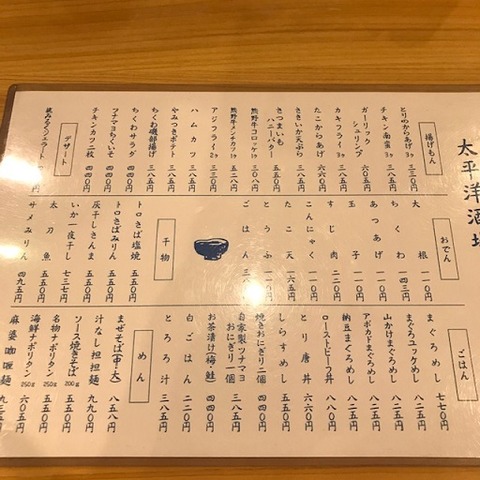 太平洋酒場
揚げもん
とりのからあげ 3ヶ 三三〇円
チキン南蛮 3ヶ
ガーリックシュリンプ 六〇五円
カキフライ 3ヶ 三八五円
たこからあげ 六六〇円
さきいか天ぷら 三八五円
さつまいもハニーバター 三八五円
熊野牛コロッケ 1ヶ 三〇八円
熊野牛メンチカツ 1ヶ 三八五円
アジフライ 2ヶ 三八五円
ハムカツ 三〇八円
やみつきポテト 三八五円
ちくわ磯部揚げ 三八五円
ツナマヨちくいそ 四四〇円
ちくわサラダ 四四〇円
チキンカツ二枚 四四〇円
デザート
おでん
大根 一一〇円
ちくわ 一一〇円
あつあげ 一一〇円
玉子 一一〇円
すじ肉 二二〇円
こんにゃく 一一〇円
たこ天 二七五円
とうふ 一一〇円
ごはん
干物
トロさば塩焼 五五〇円
トロさばみりん 五五〇円
灰干しさんま 五五〇円
いか一夜干し 七三七円
太刀魚 五五〇円
サメみりん 四九五円
ごはん
まぐろめし 七七〇円
まぐろユッケめし 八二五円
山かけまぐろめし 八二五円
アボカドまぐろめし 八二五円
納豆まぐろめし 八二五円
ローストビーフ丼 八二五円
とり唐丼 五五〇円
しらすめし 五五〇円
焼きおにぎり二個 四四〇円
自家製ツナマヨおにぎり一個 三八五円
お茶漬け(梅・鮭) 四四〇円
白ごはん 二二〇円
とろろ汁 三八五円
めん
まぜそば(中・大) 八五八円
汁なし担担麺 九九〇円
ソース焼きそば 200g 五五〇円
名物ナポリタン 250g 五五〇円
海鮮ナポリタン 250g 六〇五円
麻婆咖喱麺